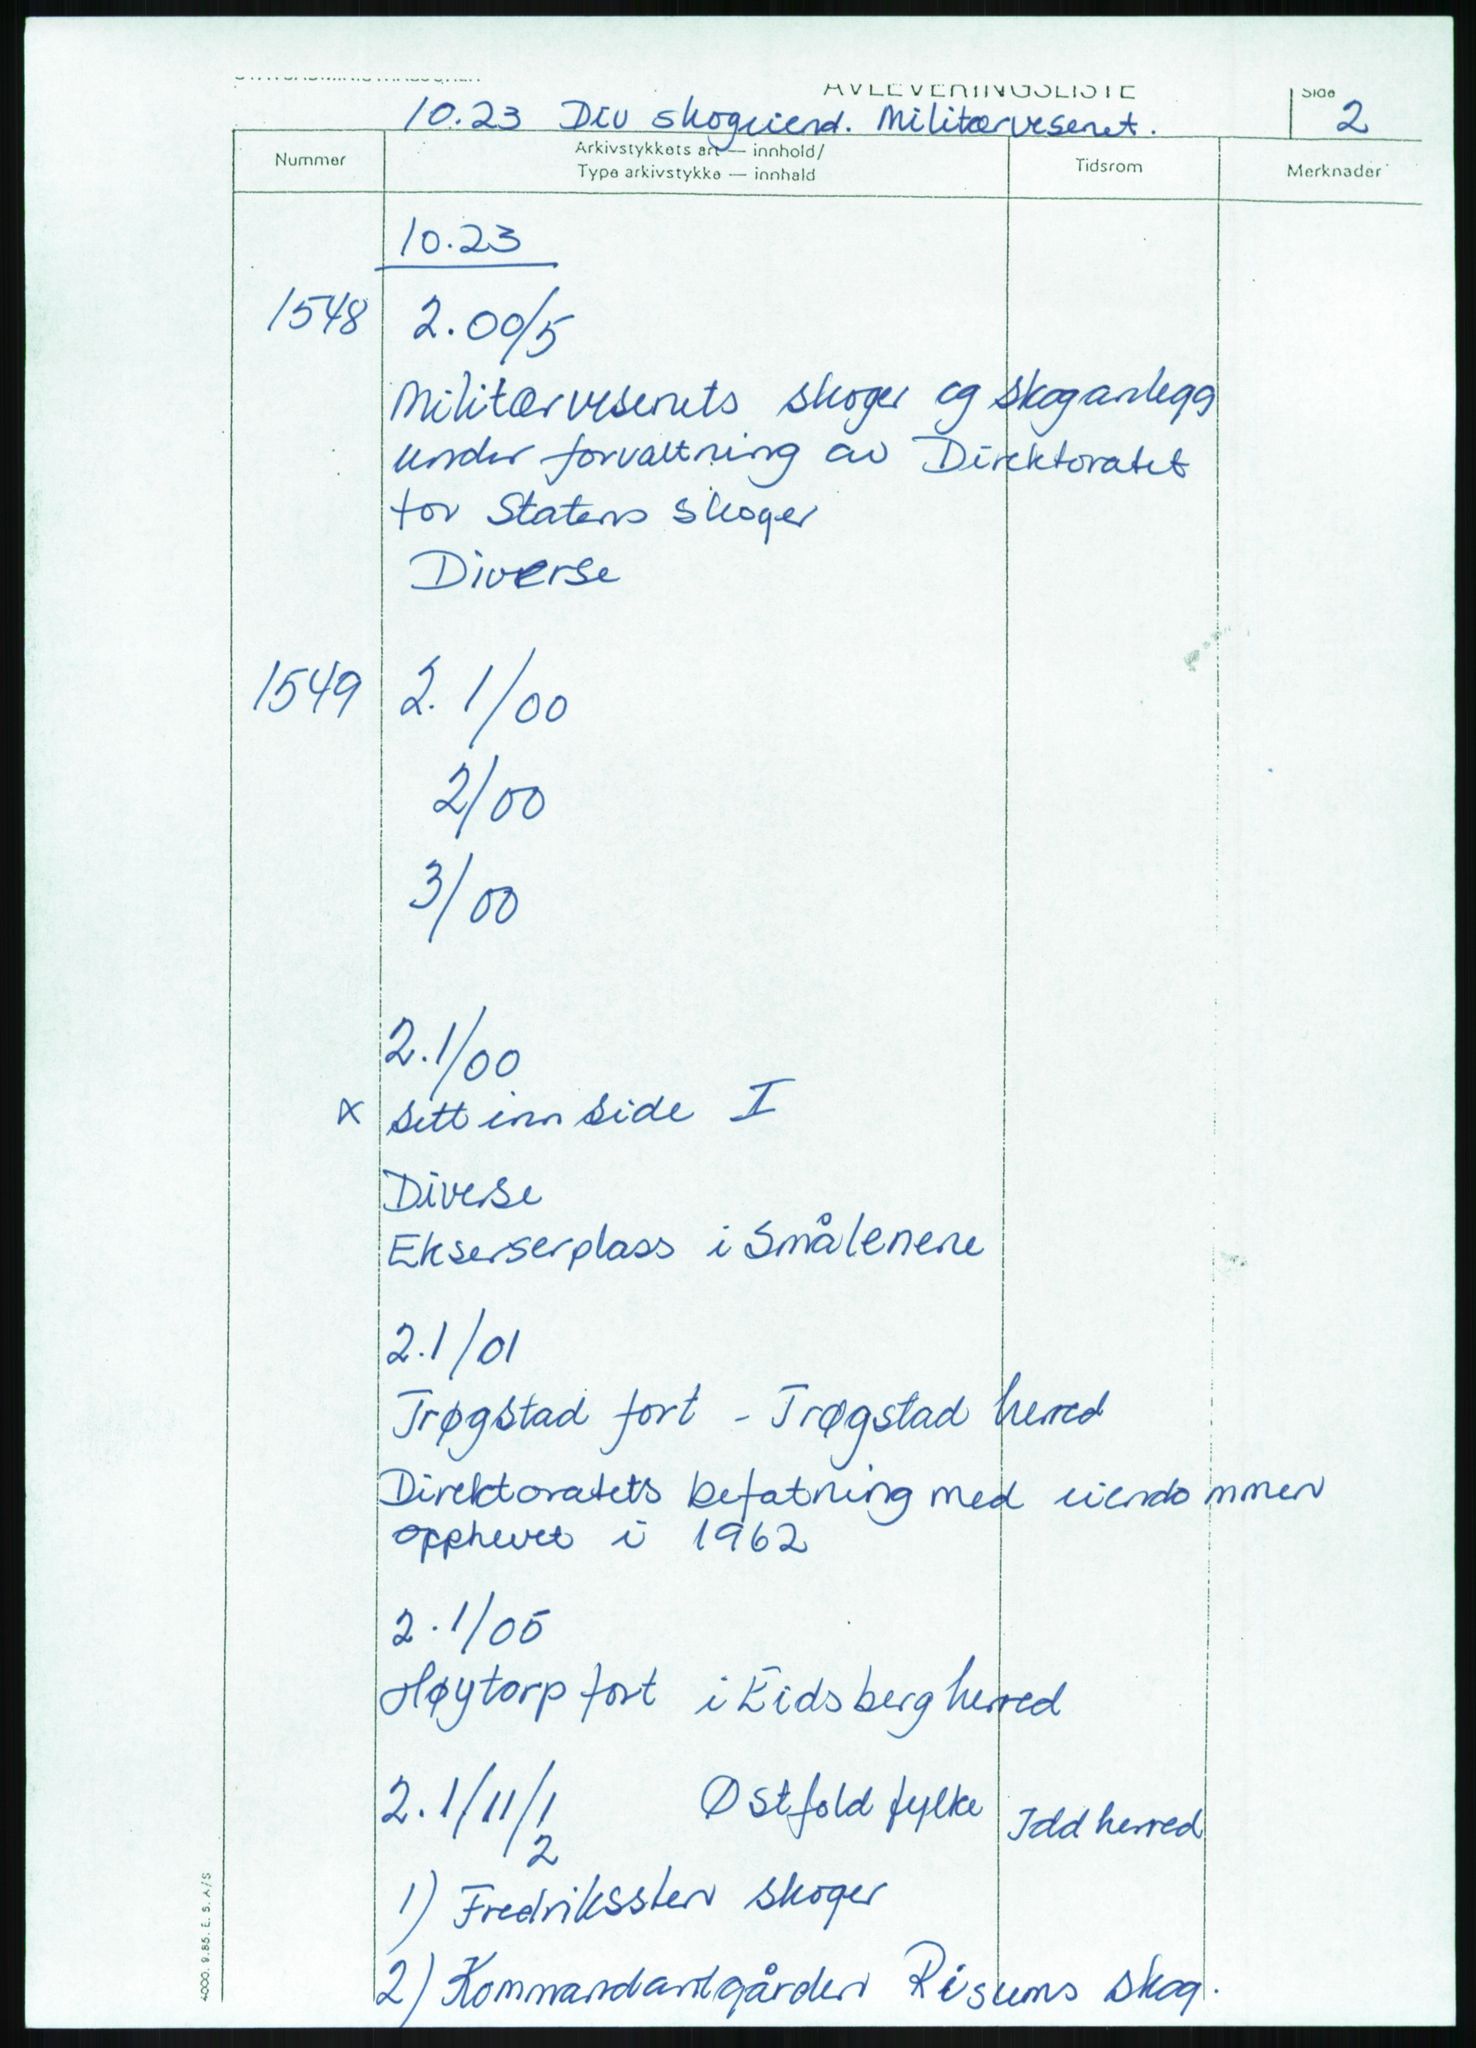 STATSADMINISTRASJONEN
AVLEVERINGSLISTE
Side
10.23 Div skogeiend. Militærvesenet.
2
Nummer
Arkivstykkets art — innhold/
Type arkivstykke — innhald
Tidsrom
Merknader
10.23
1548 2.00/5
Militærvesenets skoger og skoganlegg
under forvaltning av Direktoratet
for Statens skoger
Diverse
1549 2. 1/00
2/00
3/00
2.1/00
x sett inn side I
Diverse
Ekserserplass i Smålenene
2.1/01
Trøgstad fort - Trøgstad herred
Direktoratets befatning med eiendommen
opphevet i 1962
2.1/05
Høytorp fort i Eidsberg herred
2.1/11/1 Østfold fylke Idd herred
2
1) Fredriksten skoger
2) Kommandantgården Risums skog.
4000. 9.85. E. S. A/S